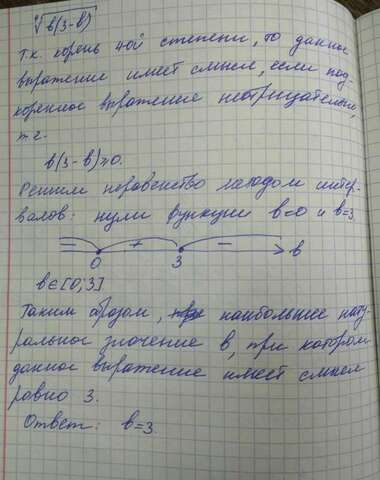 ⁴√b(3-b)
Т.к. корень 4ой степени, то данное
выражение имеет смысл, если под-
коренное выражение неотрицательно,
т.е.
b(3-b)≥0.
Решим неравенство методом интер-
валов: нули функции b=0 и b=3
− + −
0 3 b
b∈[0;3]
Таким образом, наибольшее нату-
ральное значение b, при котором
данное выражение имеет смысл
равно 3.
Ответ: b=3.